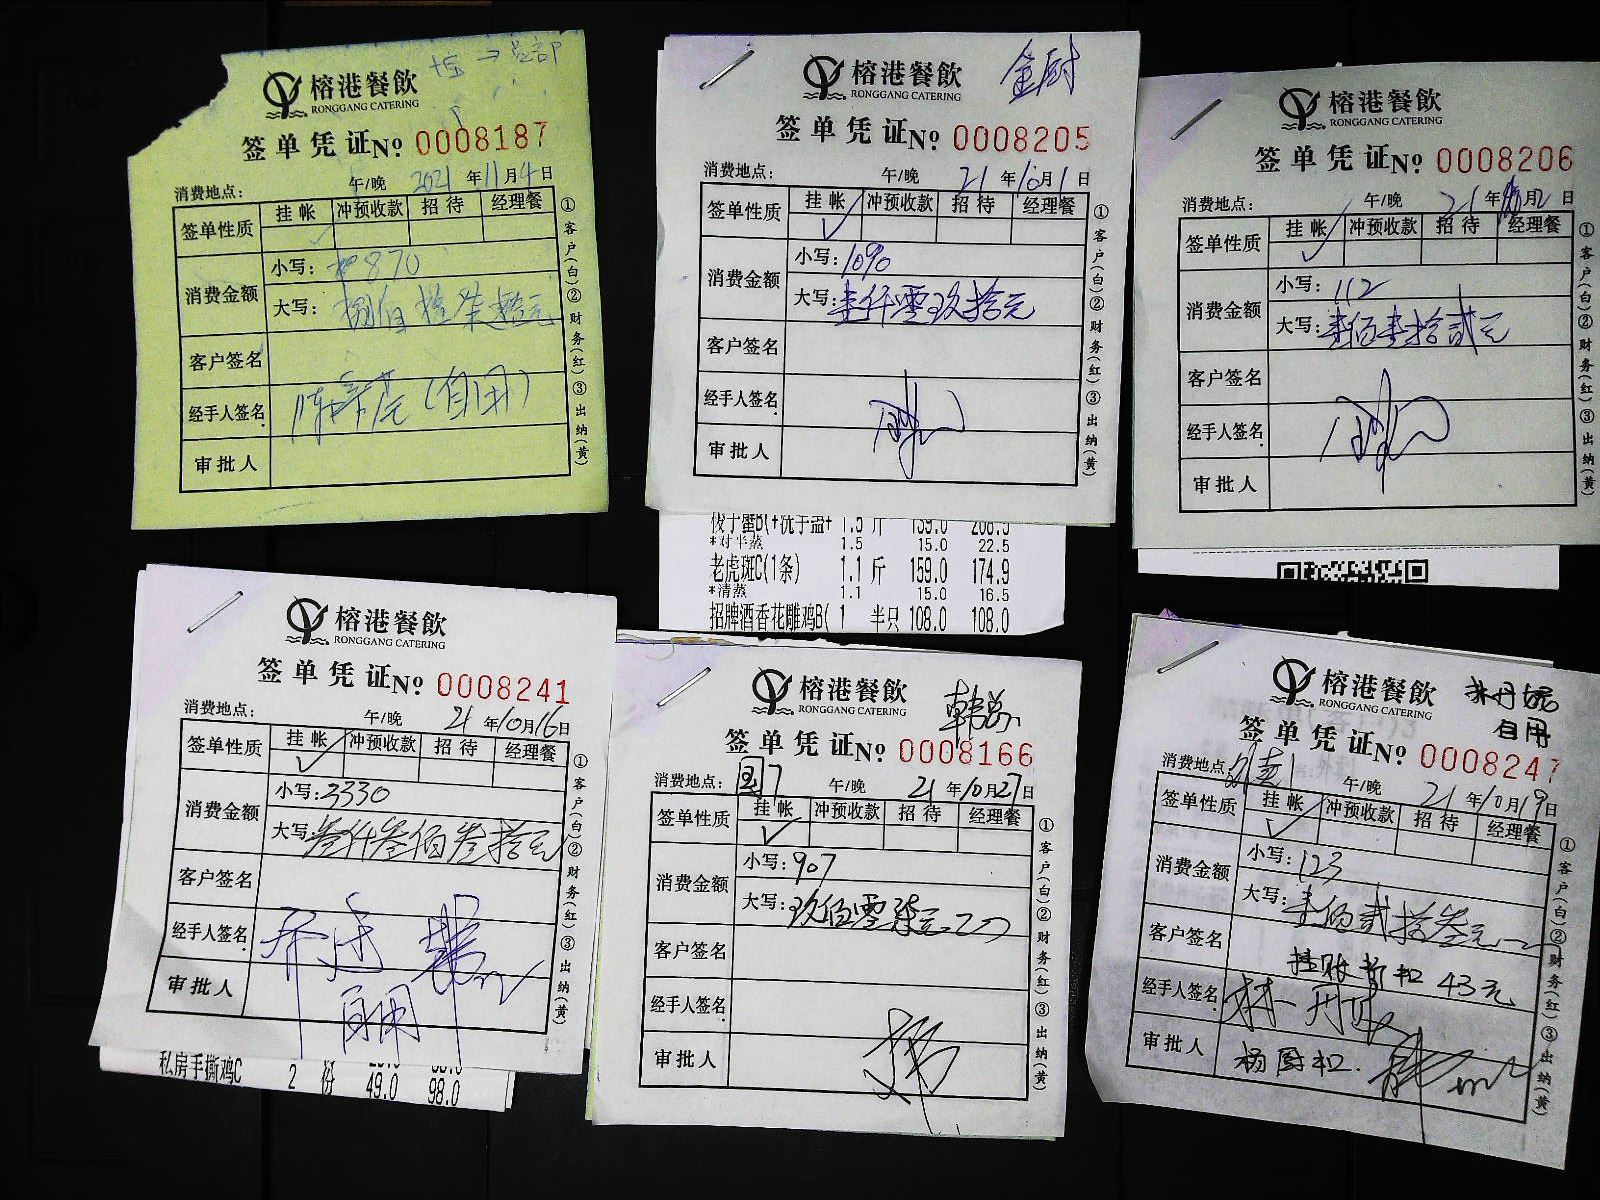 榕港餐飲
RONGGANG CATERING
签单凭证 No 0008187
消费地点： 午/晚 2021年11月4日
签单性质 挂帐 冲预收款 招待 经理餐
消费金额 小写：870
大写：捌佰 柒拾元
客户签名
经手人签名 （自用）
审批人
①客户（白）②财务（红）③出纳（黄）
榕港餐飲 金厨
RONGGANG CATERING
签单凭证 No 0008205
消费地点： 午/晚 21年10月1日
签单性质 挂帐 冲预收款 招待 经理餐
消费金额 小写：1090
大写：壹仟零玖拾元
客户签名
经手人签名
审批人
①客户（白）②财务（红）③出纳（黄）
梭子蟹B(+洗手盅+ 1.5 斤 139.0 208.5
*对半蒸 1.5 15.0 22.5
老虎斑C(1条) 1.1 斤 159.0 174.9
*清蒸 1.1 15.0 16.5
招牌酒香花雕鸡B( 1 半只 108.0 108.0
榕港餐飲
RONGGANG CATERING
签单凭证 No 0008206
消费地点： 午/晚 21年10月2日
签单性质 挂帐 冲预收款 招待 经理餐
消费金额 小写：112
大写：壹佰壹拾贰元
客户签名
经手人签名
审批人
①客户（白）②财务（红）③出纳（黄）
榕港餐飲
RONGGANG CATERING
签单凭证 No 0008241
消费地点： 午/晚 21年10月16日
签单性质 挂帐 冲预收款 招待 经理餐
消费金额 小写：3330
大写：叁仟叁佰叁拾元
客户签名
经手人签名
审批人 自用
①客户（白）②财务（红）③出纳（黄）
私房手撕鸡C 2 份 49.0 98.0
榕港餐飲
RONGGANG CATERING
签单凭证 No 0008166
消费地点： 7 午/晚 21年10月27日
签单性质 挂帐 冲预收款 招待 经理餐
消费金额 小写：907
大写：玖佰零柒元
客户签名
经手人签名
审批人
①客户（白）②财务（红）③出纳（黄）
榕港餐飲 林丹妮
RONGGANG CATERING 自用
签单凭证 No 0008247
消费地点：外卖1 午/晚 21年10月19日
签单性质 挂帐 冲预收款 招待 经理餐
消费金额 小写：123
大写：壹佰贰拾叁元
客户签名 挂账 扣 43元
经手人签名
审批人 杨厨扣.
①客户（白）②财务（红）③出纳（黄）